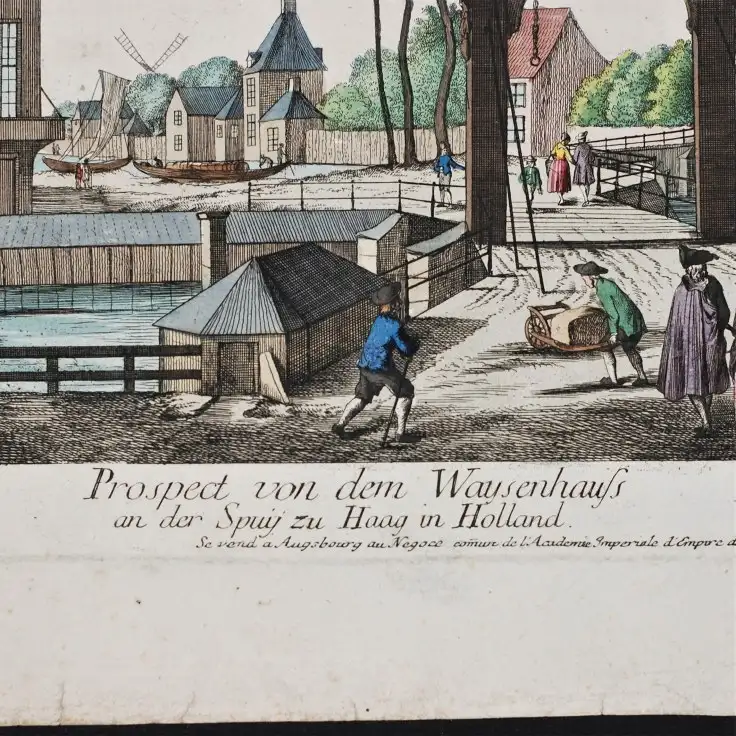 Prospect von dem Waysenhauſs
an der Spuij zu Haag in Holland.
Se vend a Augsbourg au Negoce com̄un de l'Academie Imperiale d'Empire d